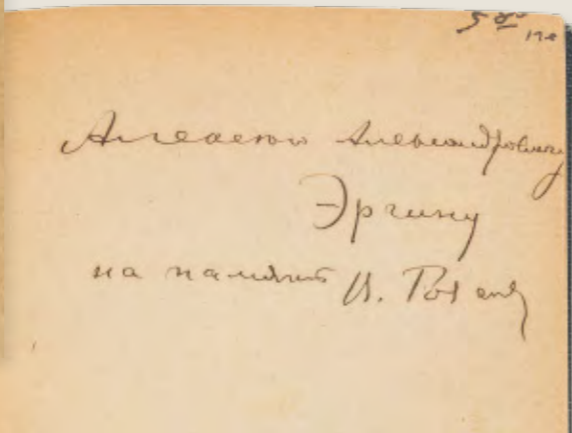 Алексею Александровичу
Эргину
на память И.